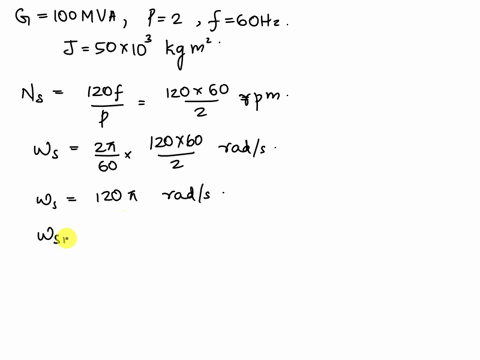 G = 100 MVA, P = 2, f = 60Hz.
J = 50 × 10³ kg m².
Ns = 120f / P = 120 × 60 / 2 rpm.
ωs = 2π / 60 × 120×60 / 2 rad/s.
ωs = 120π rad/s.
ωs